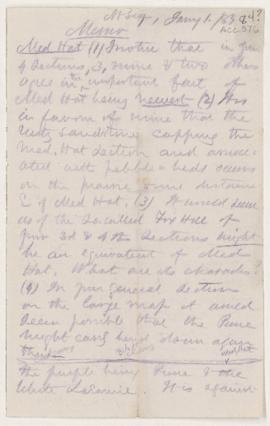 Jany 1. 83
84?
ACC 576
Memo
Med Hat (1) I notice that in your
4 sections, 3, mine & two others
agree in the important fact of
Med Hat being newest (2) It is
in favour of mine that the
rusty sandstone capping the
Med. Hat section and associ-
ated with pebble-beds occurs
on the prairie some distance
E of Med Hat. (3) It would seem
as if the so called Fox Hill of
your 3d & 4th sections might
be an equivalent of Med
Hat. What are its characters?
(4) In your general section
on the large map it would
seem possible that the Pierre
might come down again
the purple being Pierre & the
white Laramie. It is against